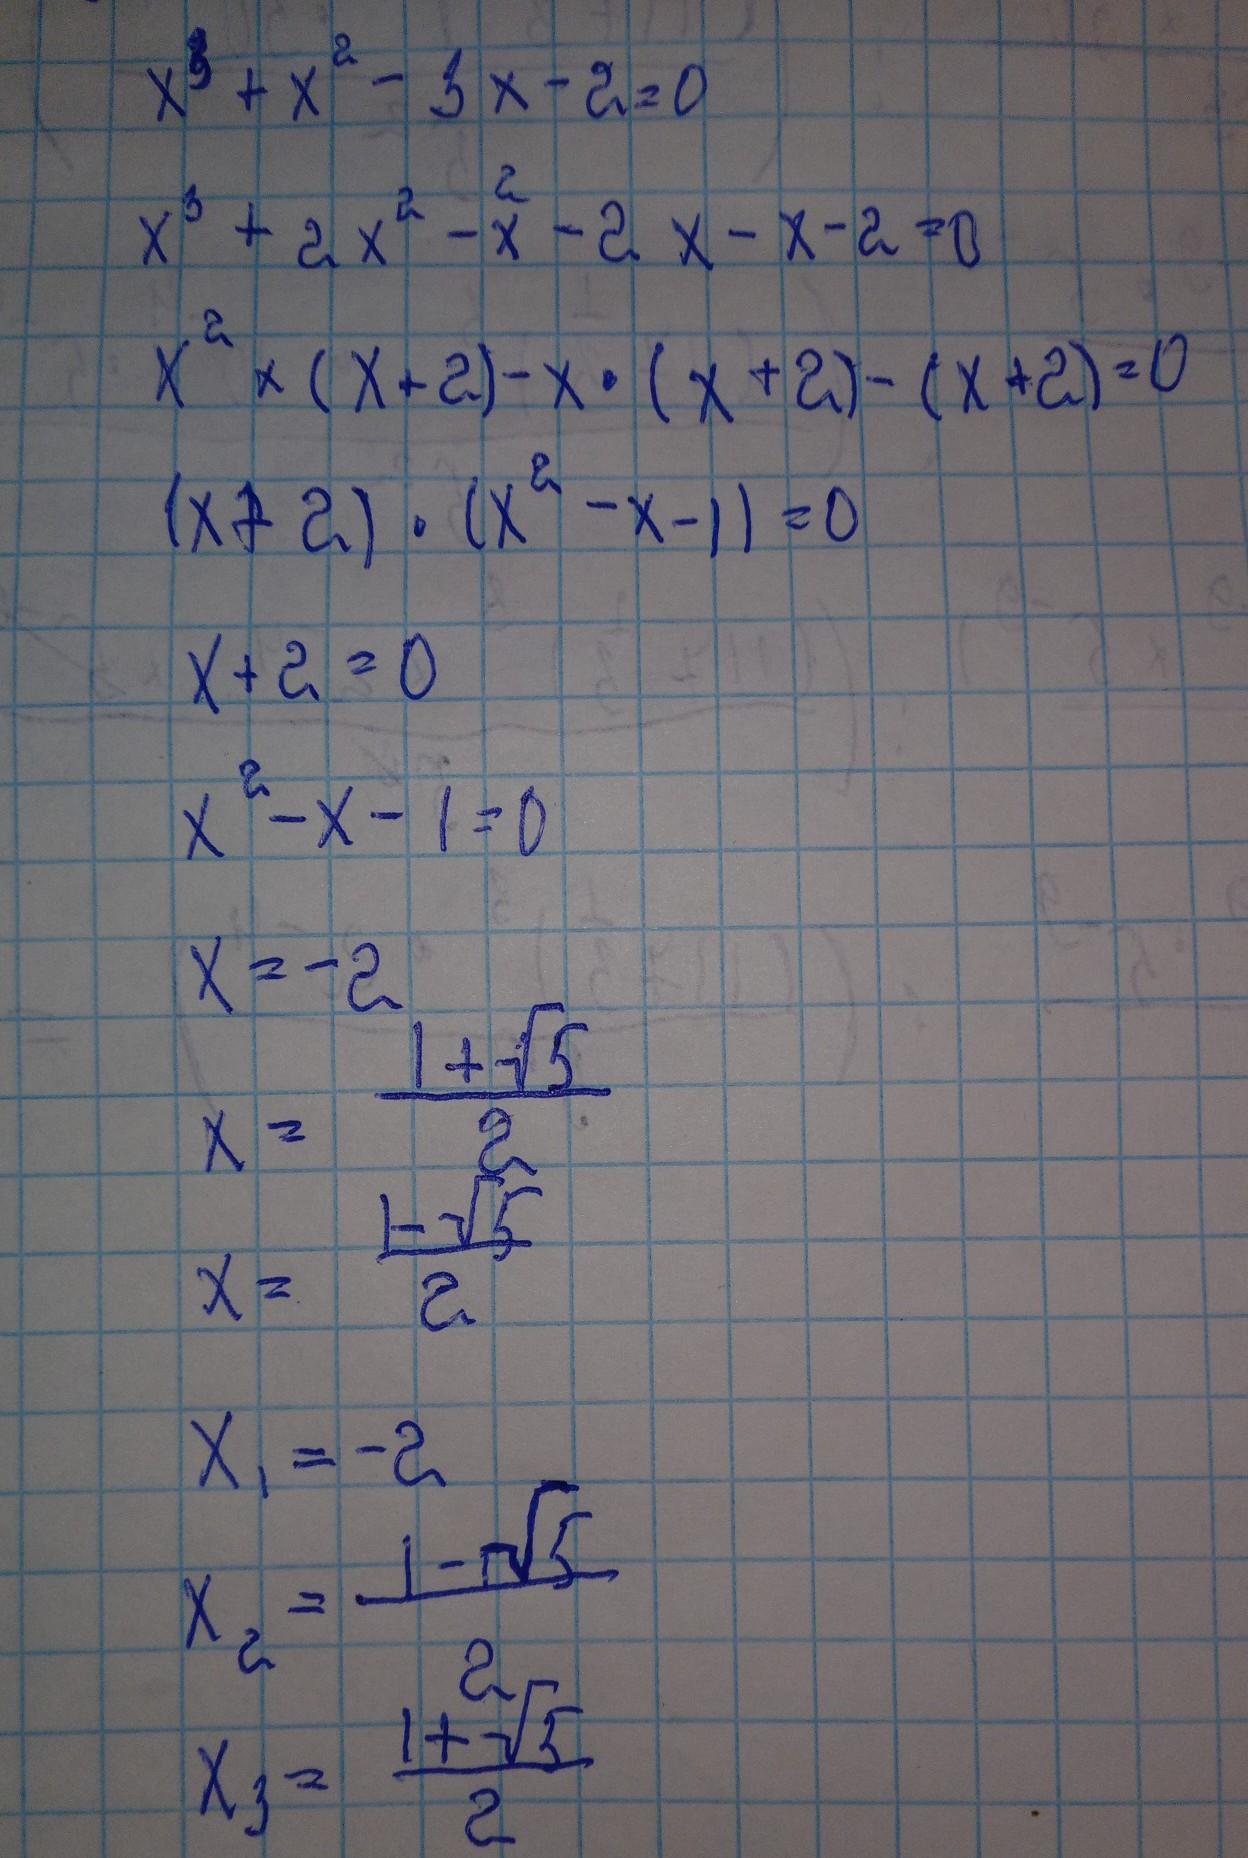 x³ + x² - 3x - 2 = 0
x³ + 2x² - x² - 2x - x - 2 = 0
x² × (x + 2) - x · (x + 2) - (x + 2) = 0
(x + 2) · (x² - x - 1) = 0
x + 2 = 0
x² - x - 1 = 0
x = -2
x = (1 + √5)/2
x = (1 - √5)/2
x₁ = -2
x₂ = (1 - √5)/2
x₃ = (1 + √5)/2